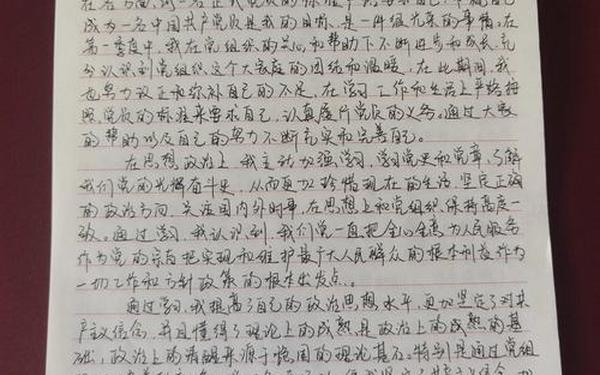 在各方面,对一名正式党员的标准严格要求自己,早就
成为一名中国共产党员是我的目标,是一件组光荣的事情。在
第一季度中,我在党组织的关心和帮助下不断进步和成长,充
分认识到党组织这个大家庭的团结和温暖,在此期间,我
也努力改正和弥补自己的不足,在学习、工作和生活上严格按
照党员的标准来要求自己,认真履行党员的义务。通过大家
的帮助以及自己的努力不断充实和完善自己。
在思想政治上,我主动加强学习,学习党史和党章,了解
我们党的光辉奋斗史,从而更加珍惜现在的生活,坚定正确
的政治方向,关注国内外时事,在思想上和党组织保持高度一
致。通过学习,我认识到,我们党一直把全心全意为人民服务
作为党的宗旨把实现和维护最广大人民群众的根本利益作为
一切工作和方针政策的根本出发点。
通过学习,我提高了自己的政治思想水平,更加坚定了对共
产主义信念,并且懂得了理论上的成熟是政治上的成熟的基
础,政治上的清醒来源于稳固的理论基石。特别是通过党组